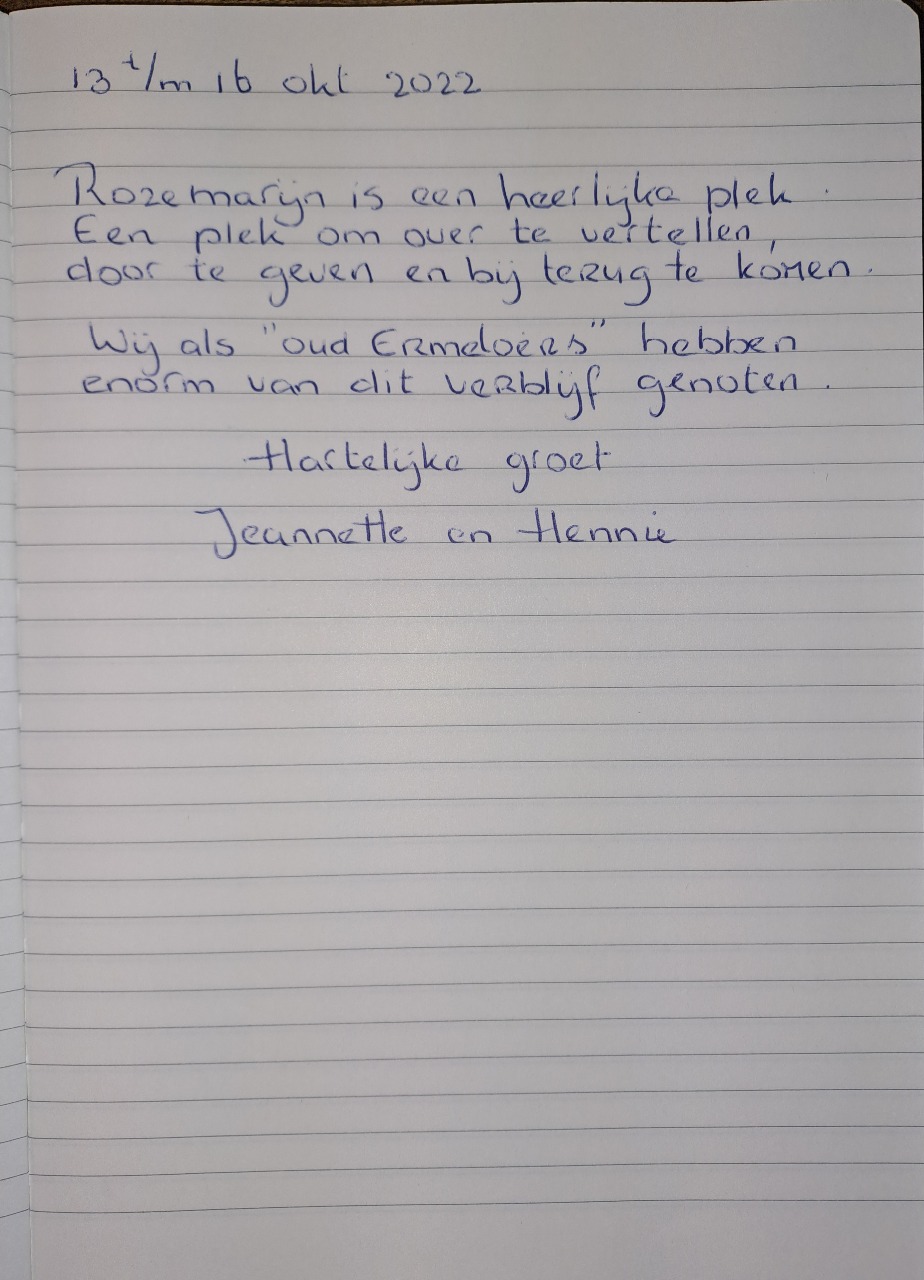 13 t/m 16 okt 2022
Rozemarijn is een heerlijke plek.
Een plek om over te vertellen,
door te geven en bij terug te komen.
Wij als "oud Ermeloërs" hebben
enorm van dit verblijf genoten.
Hartelijke groet
Jeannette en Hennie